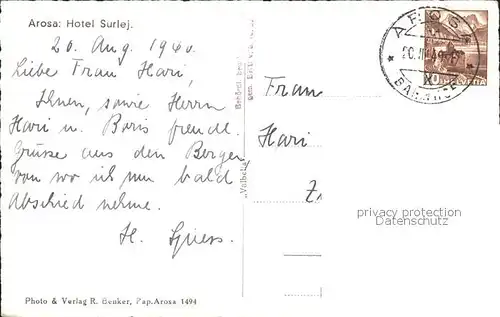 Arosa: Hotel Surlej.
20. Aug. 1940.
Liebe Frau Hari,
Ihnen, sowie Herrn
Hari u. Boris freundl.
Grüsse aus den Bergen
von wo ich nun bald
Abschied nehme.
H. Spiess.
Photo & Verlag R. Benker, Pap. Arosa 1494
AROSA
HELVETIA
Frau
Hari
Z
privacy protection
Datenschutz